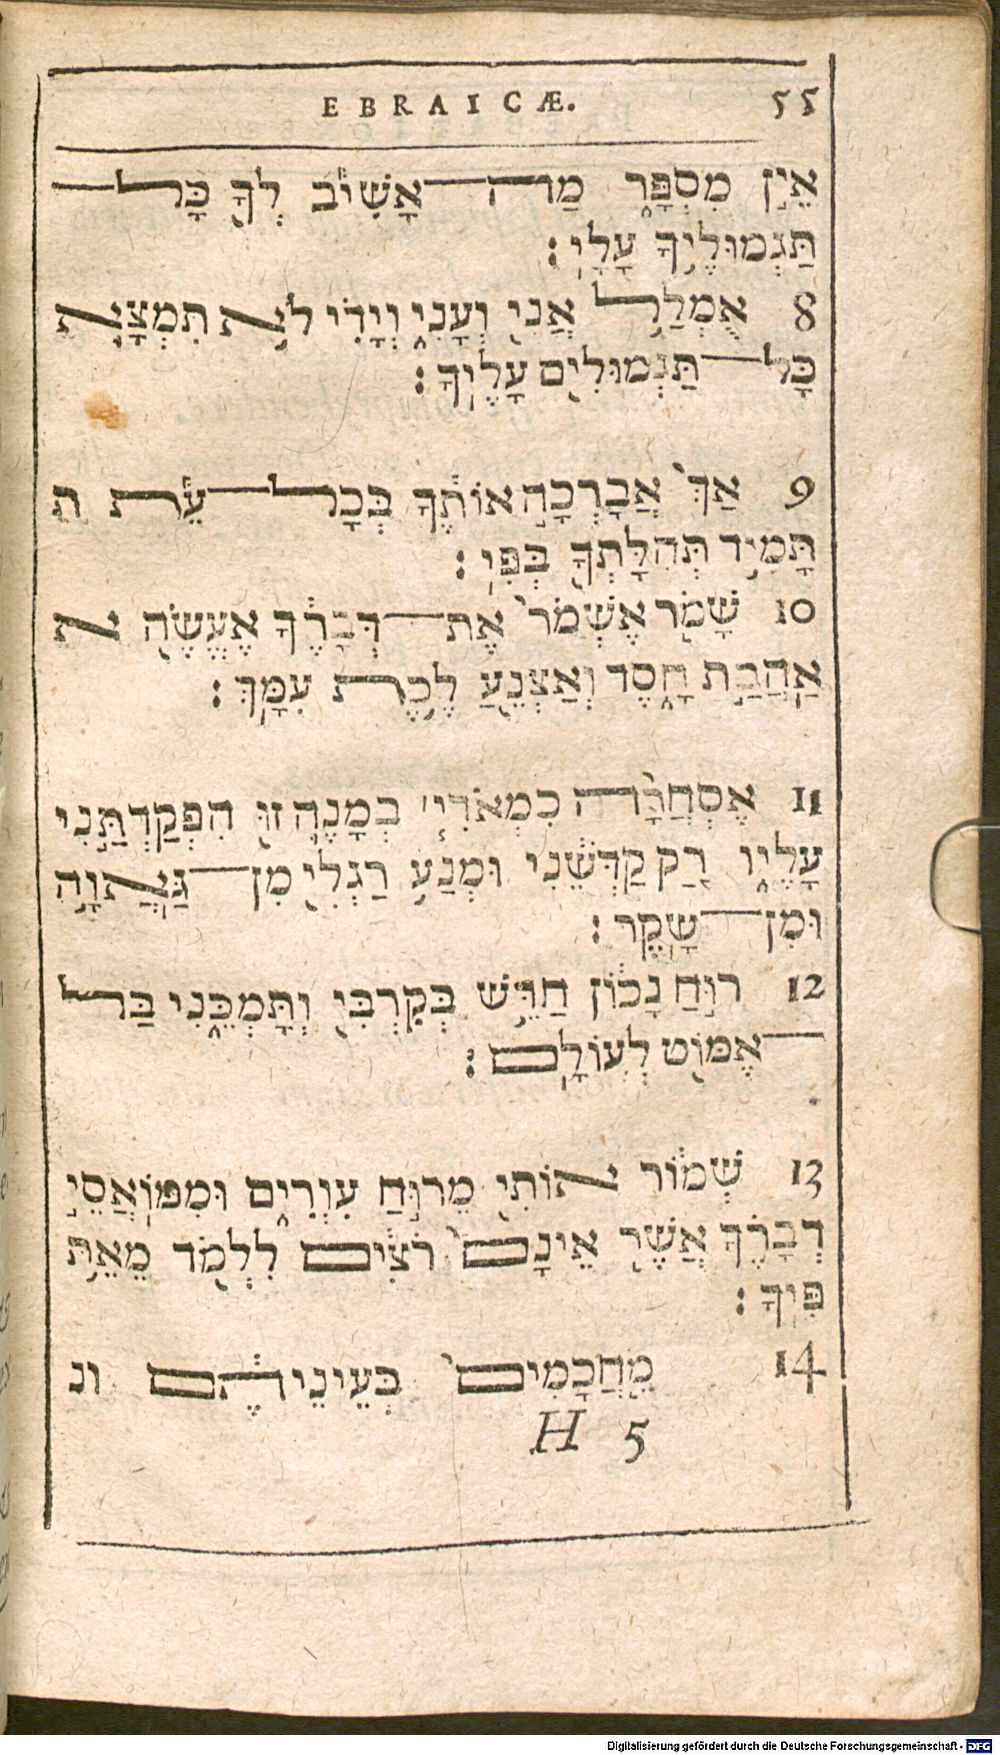 EBRAICÆ. 55
אֵין מִסְפָּר מַה־אָשִׁיב לְךָ כָּל־
תַּגְמוּלֶיךָ עָלָי׃
8 אֻמְלַל אֲנִי וְעָנִי וְיָדִי לֹא תִמְצָא
כָּל־תַּגְמוּלִים עָלֶיךָ׃
9 אַךְ אֲבָרְכָה אוֹתְךָ בְּכָל־עֵת ת
תָּמִיד תְּהִלָּתְךָ בְּפִי׃
10 שָׁמֹר אֶשְׁמֹר אֶת־דְּבָרֶךָ אֶעֱשֶׂה א
אַהֲבַת חֶסֶד וְאַצְנֵעַ לֶכֶת עִמָּךְ׃
11 אֶסְחֲרָה כִמְאֹדִי בְמָנֶה זוּ הִפְקַדְתַּנִי
עָלָיו רַק קַדְּשֵׁנִי וּמְנַע רַגְלִי מִן־גַּאֲוָה
וּמִן־שָׁקֶר׃
12 רוּחַ נָכוֹן חַדֵּשׁ בְּקִרְבִּי וְתָמְכֵנִי בַּל
־אֶמּוֹט לְעוֹלָם׃
13 שְׁמוֹר אוֹתִי מֵרוּחַ עִוְרִים וּמִמּוֹאֲסֵי
דְבָרֶךָ אֲשֶׁר אֵינָם רֹצִים לִלְמֹד מֵאֵת
פִּיךָ׃
14 מֵחֲכָמִים בְּעֵינֵיהֶם ונ
H 5
Digitalisierung gefördert durch die Deutsche Forschungsgemeinschaft - DFG